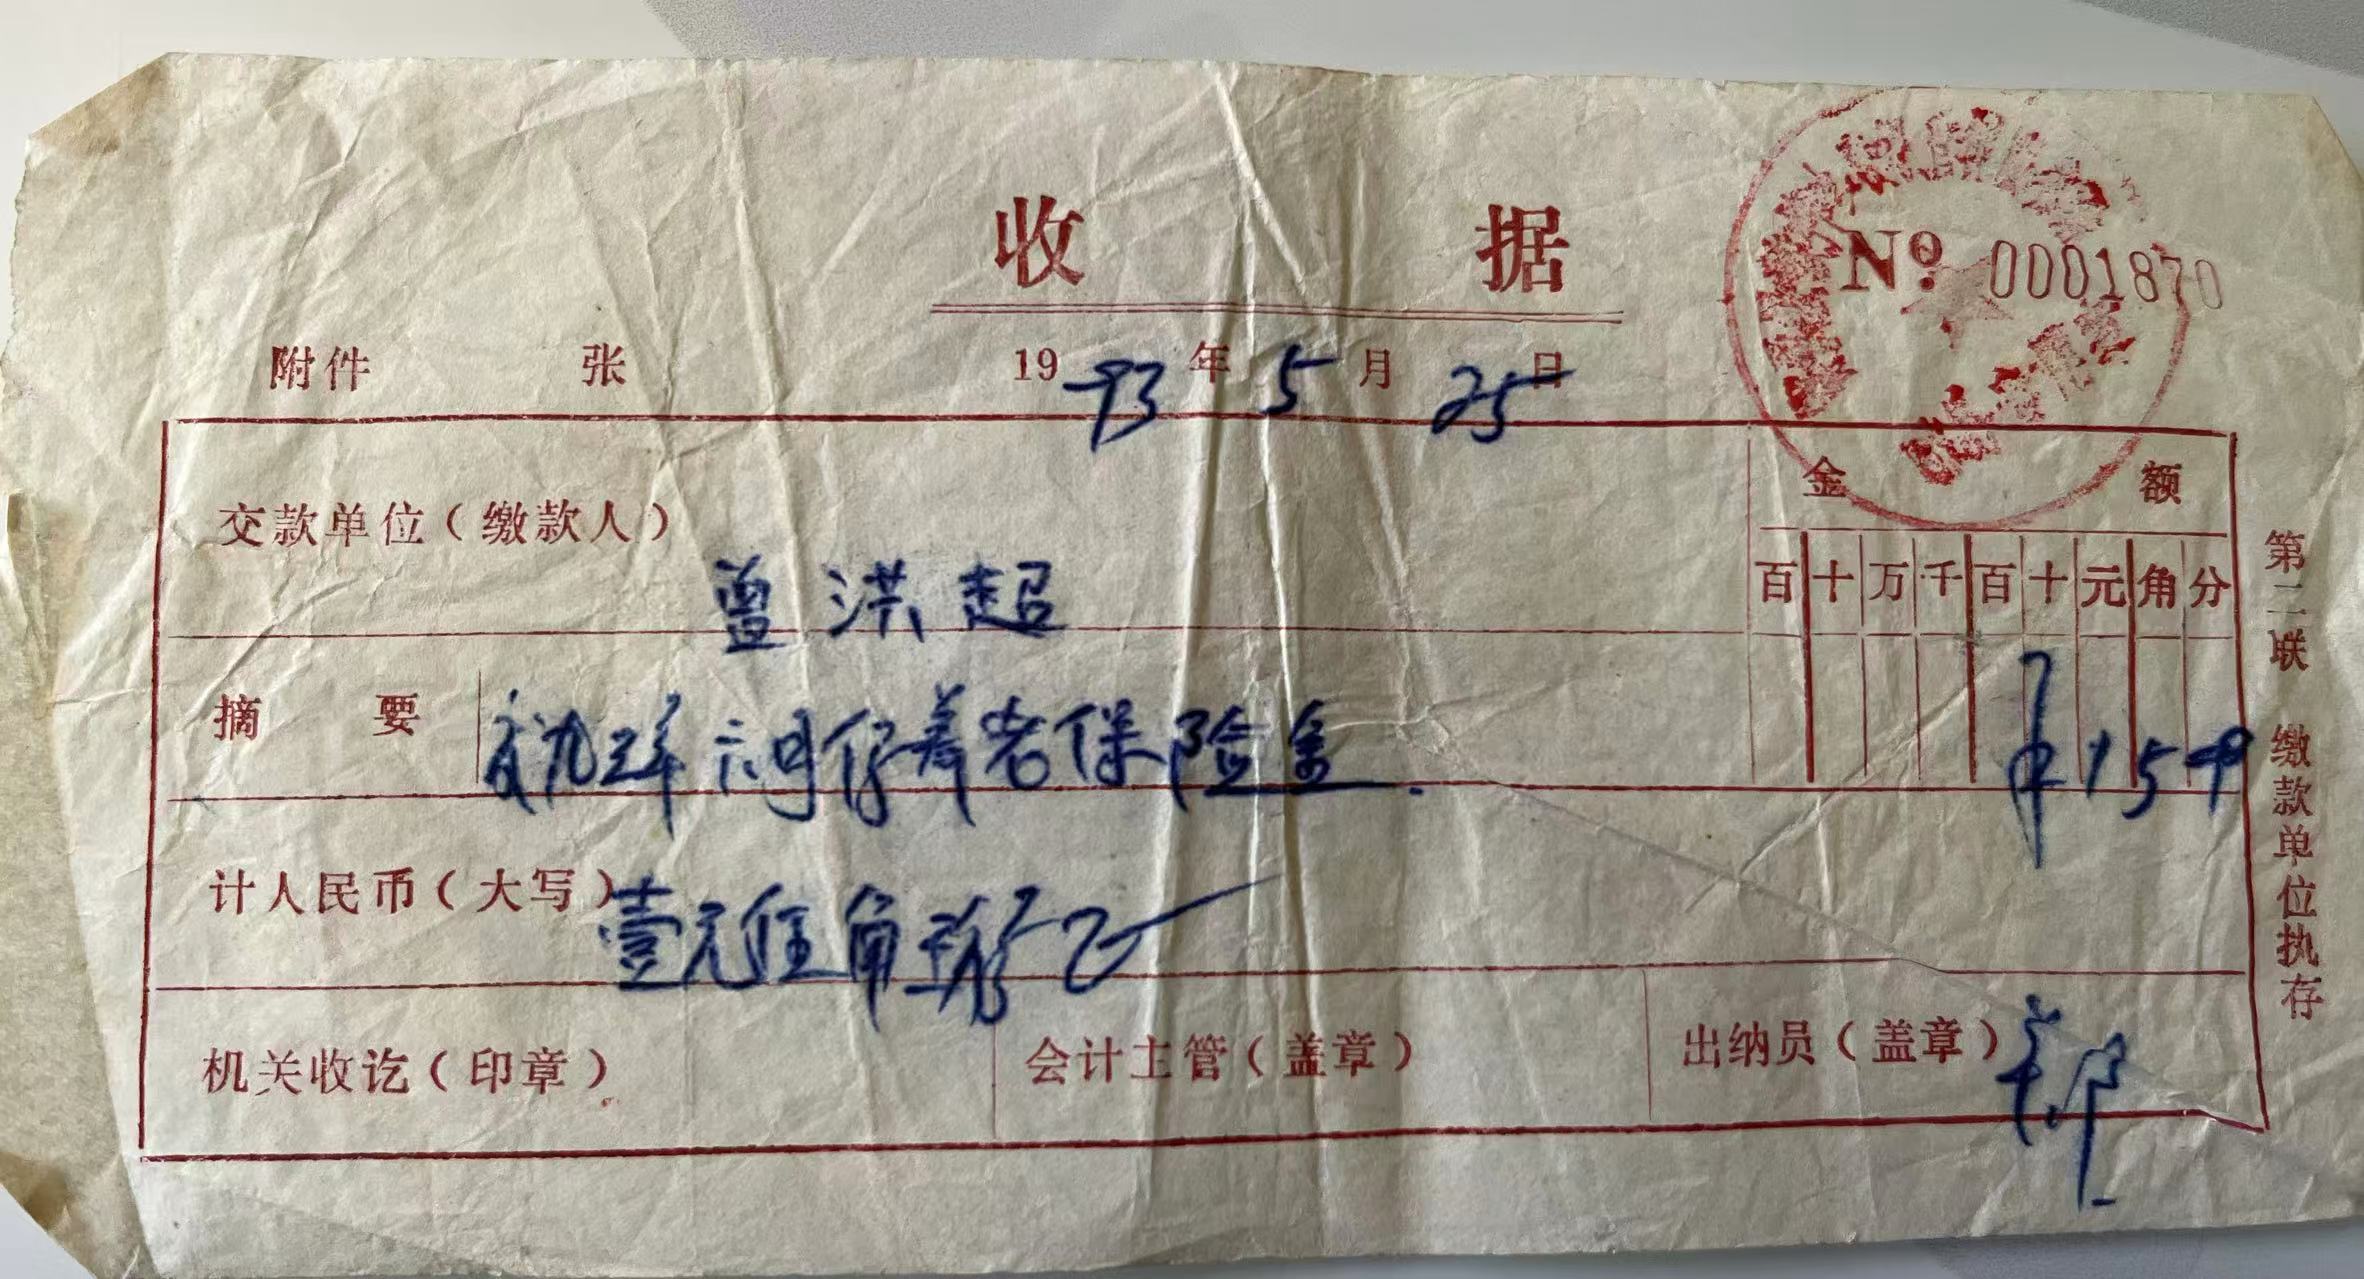 收 据
№ 0001870
附件 张 1993年5月25日
交款单位（缴款人） 曾洪超
金 额
百 十 万 千 百 十 元 角 分
摘 要 九三年六月份养老保险金.
计人民币（大写） 壹元伍角
机关收讫（印章） 会计主管（盖章） 出纳员（盖章）
第二联 缴款单位执存